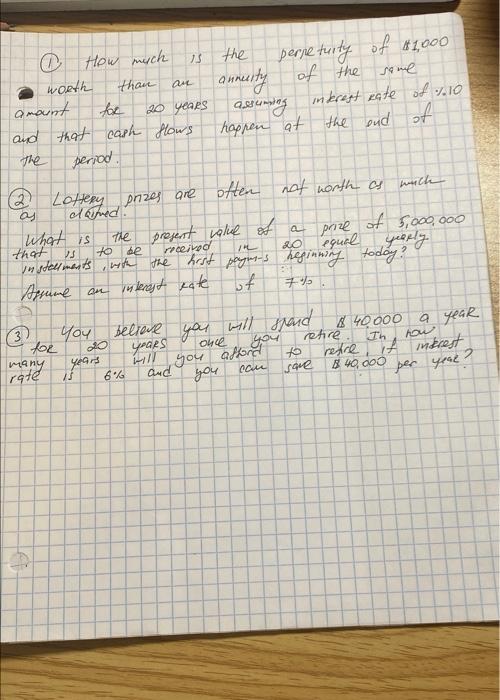 ① How much is the perpetuity of $1,000
worth than an annuity of the same
amount for 20 years assuming interest rate of %10
and that cash flows happen at the end of
the period.
② Lottery prizes are often not worth as much
as claimed.
What is the present value of a prize of 5,000,000
that is to be received in 20 equal yearly
installments, with the first beginning today?
Assume an interest rate of 7%.
③ You believe you will spend $ 40,000 a year
for 20 years once you retire. In how
many years will you afford to retire, if interest
rate is 6% and you can save $ 40,000 per year?